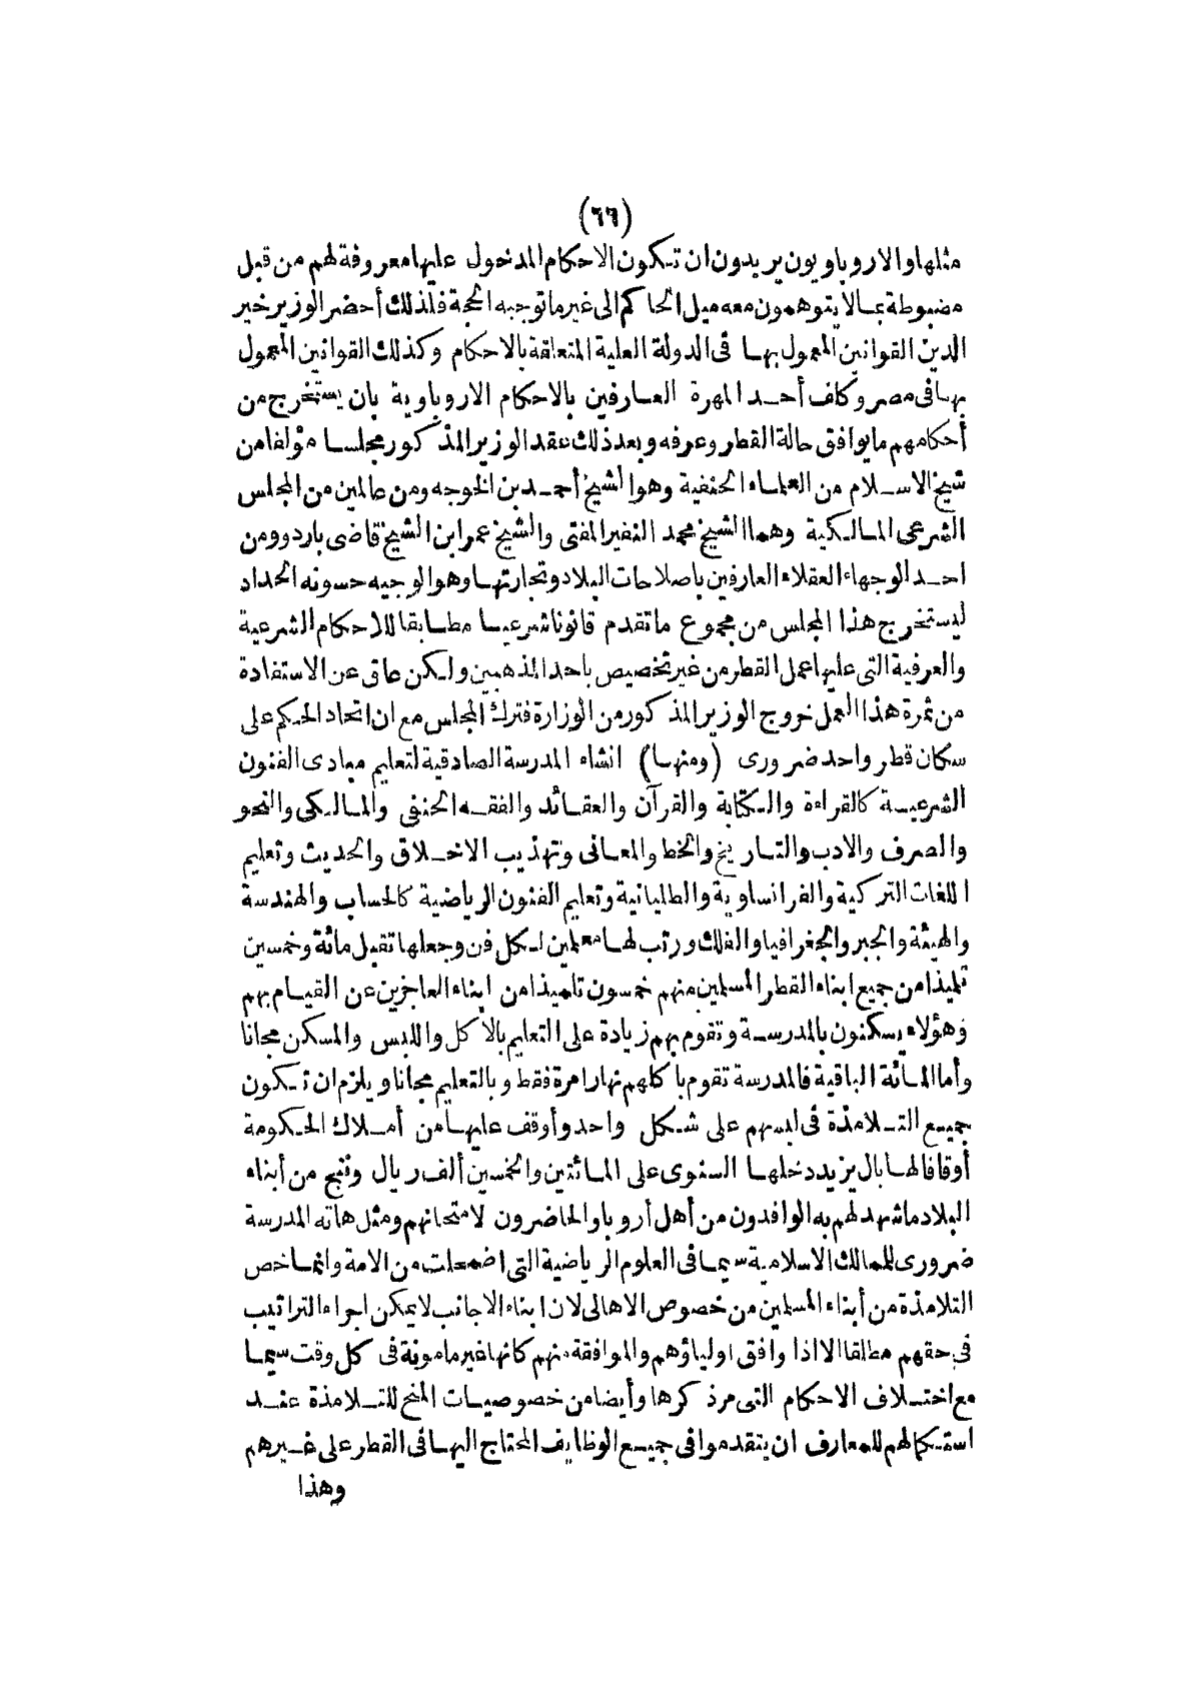 (٦٦)
مثلها والاروباويون يريدون ان تكون الاحكام المدخول عليها معروفة لهم من قبل
مضبوطة بما لا يتوهمون معه ميل الحاكم الى غير ما توجبه الحجة فلذلك أحضر الوزير خير
الدين القوانين المعمول بها فى الدولة العلية المتعلقة بالاحكام وكذلك القوانين المعمول
بها فى مصر وكاف أحد المهرة العارفين بالاحكام الاروباوية بان يستخرج من
أحكامهم ما يوافق حالة القطر وعرفه وبعد ذلك عقد الوزير المذكور مجلسا مؤلفا من
شيخ الاسلام من العلماء الحنفية وهو الشيخ أحمد بن الخوجه ومن عالمين من المجلس
الشرعى المالكية وهما الشيخ محمد النفير المفتى والشيخ عمر ابن الشيخ قاضى باردو ومن
احد الوجهاء العقلاء العارفين باصلاحات البلاد وتجارتها وهو الوجيه حسونه الحداد
ليستخرج هذا المجلس من مجموع ما تقدم قانونا شرعيا مطابقا للاحكام الشرعية
والعرفية التى عليها عمل القطر من غير تخصيص باحد المذهبين ولكن عاق عن الاستفادة
من ثمرة هذا العمل خروج الوزير المذكور من الوزارة فترك المجلس مع ان اتحاد الحكم على
سكان قطر واحد ضرورى (ومنها) انشاء المدرسة الصادقية لتعليم مبادى الفنون
الشرعية كالقراءة والكتابة والقرآن والعقائد والفقه الحنفى والمالكى والنحو
والصرف والادب والتاريخ والخط والمعانى وتهذيب الاخلاق والحديث وتعليم
اللغات التركية والفرانساوية والطليانية وتعليم الفنون الرياضية كالحساب والهندسة
والهيئة والجبر والجغرافيا والفلك ورتب لها معلمين لكل فن وجعلها تقبل مائة وخمسين
تلميذا من جميع ابناء القطر المسلمين منهم خمسون تلميذا من ابناء العاجزين عن القيام بهم
وهؤلاء يسكنون بالمدرسة وتقوم بهم زيادة على التعليم بالاكل واللبس والمسكن مجانا
وأما المائة الباقية فالمدرسة تقوم باكلهم نهارا مرة فقط وبالتعليم مجانا ويلزم ان تكون
جميع التلامذة فى لبسهم على شكل واحد وأوقف عليها من أملاك الحكومة
أوقافا لها بال يزيد دخلها السنوى على المائتين والخمسين ألف ريال ونتج من أبناء
البلاد ما شهد لهم به الوافدون من أهل أروبا والحاضرون لامتحانهم ومثل هاته المدرسة
ضرورى للممالك الاسلامية سيما فى العلوم الرياضية التى اضمحلت من الامة وانما خص
التلامذة من أبناء المسلمين من خصوص الاهالى لان ابناء الاجانب لا يمكن اجراء التراتيب
فى حقهم مطلقا الا اذا وافق اولياؤهم والموافقة منهم كانها غير مامونة فى كل وقت سيما
مع اختلاف الاحكام التى مر ذكرها وأيضا من خصوصيات المنح للتلامذة عند
استكمالهم للمعارف ان يتقدموا فى جميع الوظايف المحتاج اليها فى القطر على غيرهم
وهذا